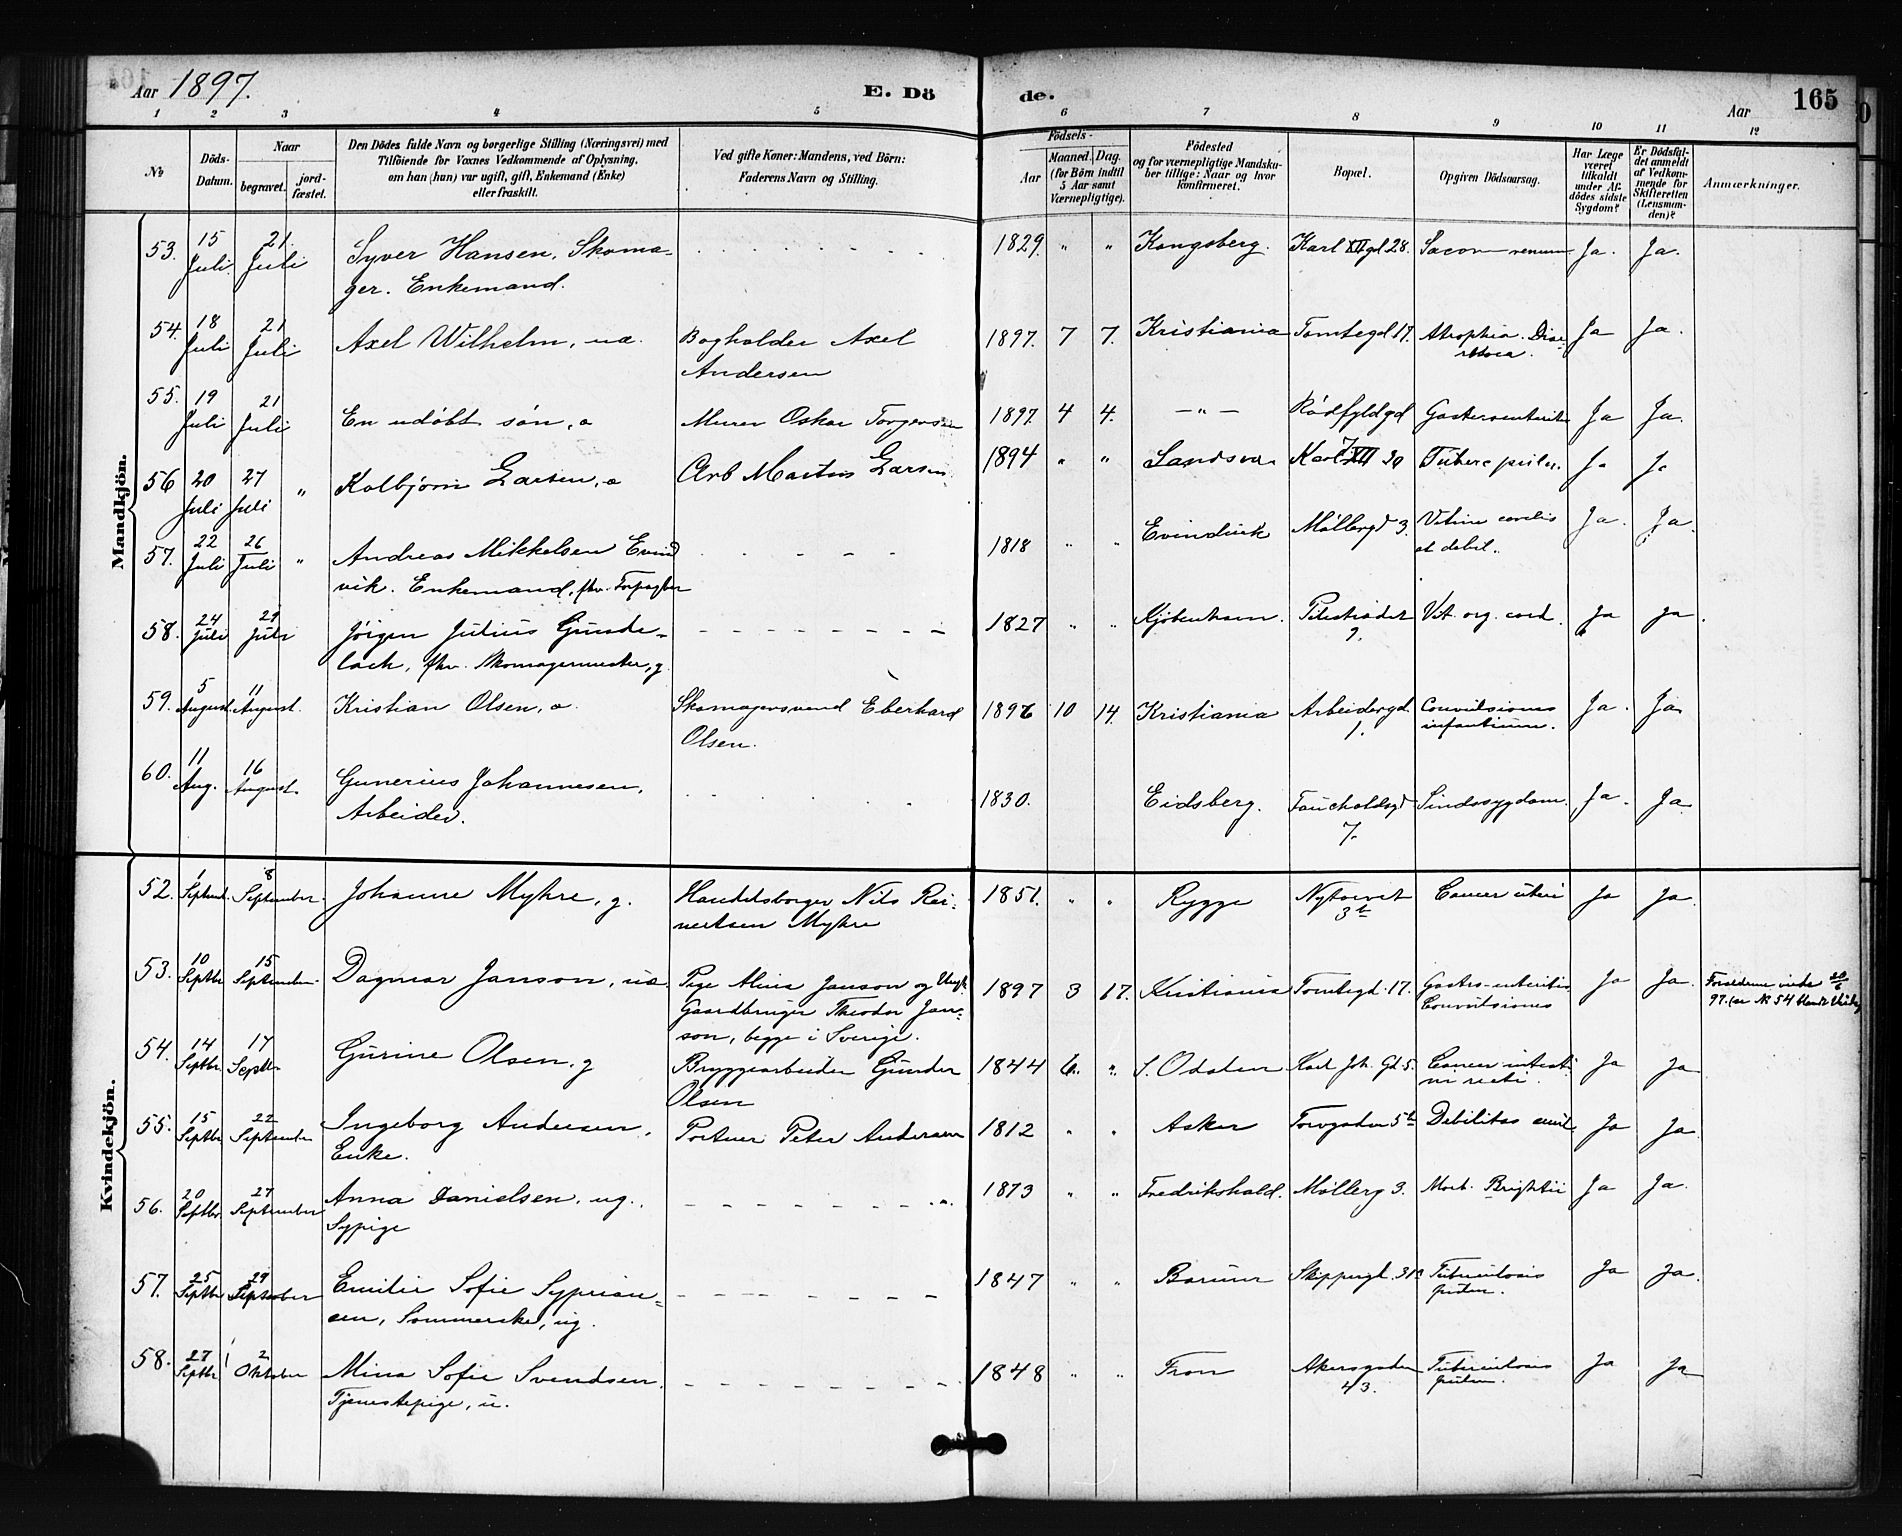 Aar 1897.
E. Dö
de.
Aar
165
1 2 3 4 5 6 7 8 9 10 11 12
No
Döds-Datum.
Naar
begravet.
jord-fæstet.
Den Dödes fulde Navn og borgerlige Stilling (Næringsvei) med
Tilföiende for Voxnes Vedkommende af Oplysning,
om han (hun) var ugift, gift, Enkemand (Enke)
eller fraskilt.
Ved gifte Koner: Mandens, ved Börn:
Faderens Navn og Stilling.
Födsels-
Aar
Maaned. Dag.
(for Börn indtil
5 Aar samt
Værnepligtige).
Födested
og for værnepligtige Mandsku-
ber tillige: Naar og hvor
konfirmeret.
Bopæl.
Opgiven Dödsaarsag.
Har Læge
været
tilkaldt
under Af-
dödes sidste
Sygdom?
Er Dödsfal-
det anmeldt
af Vedkom-
mende for
Skifteretten
(Lensman-
den)?
Anmærkninger.
Mandkjön.
53. 15 Juli 21 Juli Syver Hansen, Skoma-
ger. Enkemand. 1829. " " Kongsberg. Karl XII gd 28. Ja. Ja.
54. 18 Juli 21 Juli Axel Wilhelm, ua. Bogholder Axel
Andersen 1897. 7 7. Kristiania Tomtegd 17. Atrophia. Diar-
rhoea. Ja Ja.
55. 19 Juli 21 Juli En udöbt sön, a Murer Oskar Torgersen 1897. 4 4. — " — Rödfyldgd Gastroenterit. Ja Ja.
56 20 Juli 27 Juli " Kolbjörn Larsen, a Arb Martin Larsen 1894 " " Sandsvær Karl XII 30 Tuberc pulm. Ja Ja
57. 22 Juli 26 Juli " Andreas Mikkelsen Evind
vik. Enkemand, fhv. Forpagter 1818 " " Evindvik Möllergd 3. Vitium cordis
et debil.. Ja. Ja.
58. 24 Juli 29 Juli Jörgen Julius Gunde-
lach, fhv. Skomagermester, g. 1827 " " Kjöbenhavn. Pilestrædet
9. Vit. org. cord. Ja Ja.
59. 5 August. 11 August. Kristian Olsen, a. Skomagersvend Eberhard
Olsen. 1896 10 14. Kristiania Arbeidergd.
1. Convulsiones
infantium. Ja. Ja.
60. 11 Aug. 16 August. Gunerius Johannesen,
Arbeider. 1830. Eidsberg. Fauchaldsgd
7. Sindssygdom. Ja. Ja.
Kvindekjön.
52. 1 Septemb. 8 September. Johanne Myhre, g. Handelsborger Nils Rei-
nertsen Myhre 1851. " " Rygge Nytorvet
3b Cancer uteri Ja Ja.
53. 10 Septbr 15 September Dagmar Janson, ua. Pige Alina Janson og Ungk.
Gaardbruger Theodor Jan-
son, begge i Sverige. 1897 3 17. Kristiania Tomtegd. 17. Gastro-enteritis
Convulsiones Ja Ja. Forældrene viede 20/6
97. (se No 54 blandt Viede)
54. 14 Septbr 17 Septbr Gurine Olsen, g Bryggearbeider Gunder
Olsen 1844 6. " S. Odalen Karl Joh. Gd. 5. Cancer intesti
ni recti. Ja Ja
55. 15 Septbr 22 September Ingeborg Andersen,
Enke. Portner Peter Andersen 1812 " " Asker Torvgaden 5b Debilitas senil. Ja Ja.
56. 20 Septbr. 27 September Anna Danielsen, ug.
Sypige 1873 " " Fredrikshald. Möllerg 3. Morb. Brightii Ja Ja.
57. 25 Septbr 29 September Emilie Sofie Syprian-
sen, Sommerske, ug. 1847 " " Bærum Skippergd. 31a Tuberculosis
pulm. Ja Ja.
58. 27 Septbr 2 Oktober Mina Sofie Svendsen.
Tjenestepige, u. 1848 " " Fron Akersgaden
43. Tuberculosis
pulm. Ja Ja